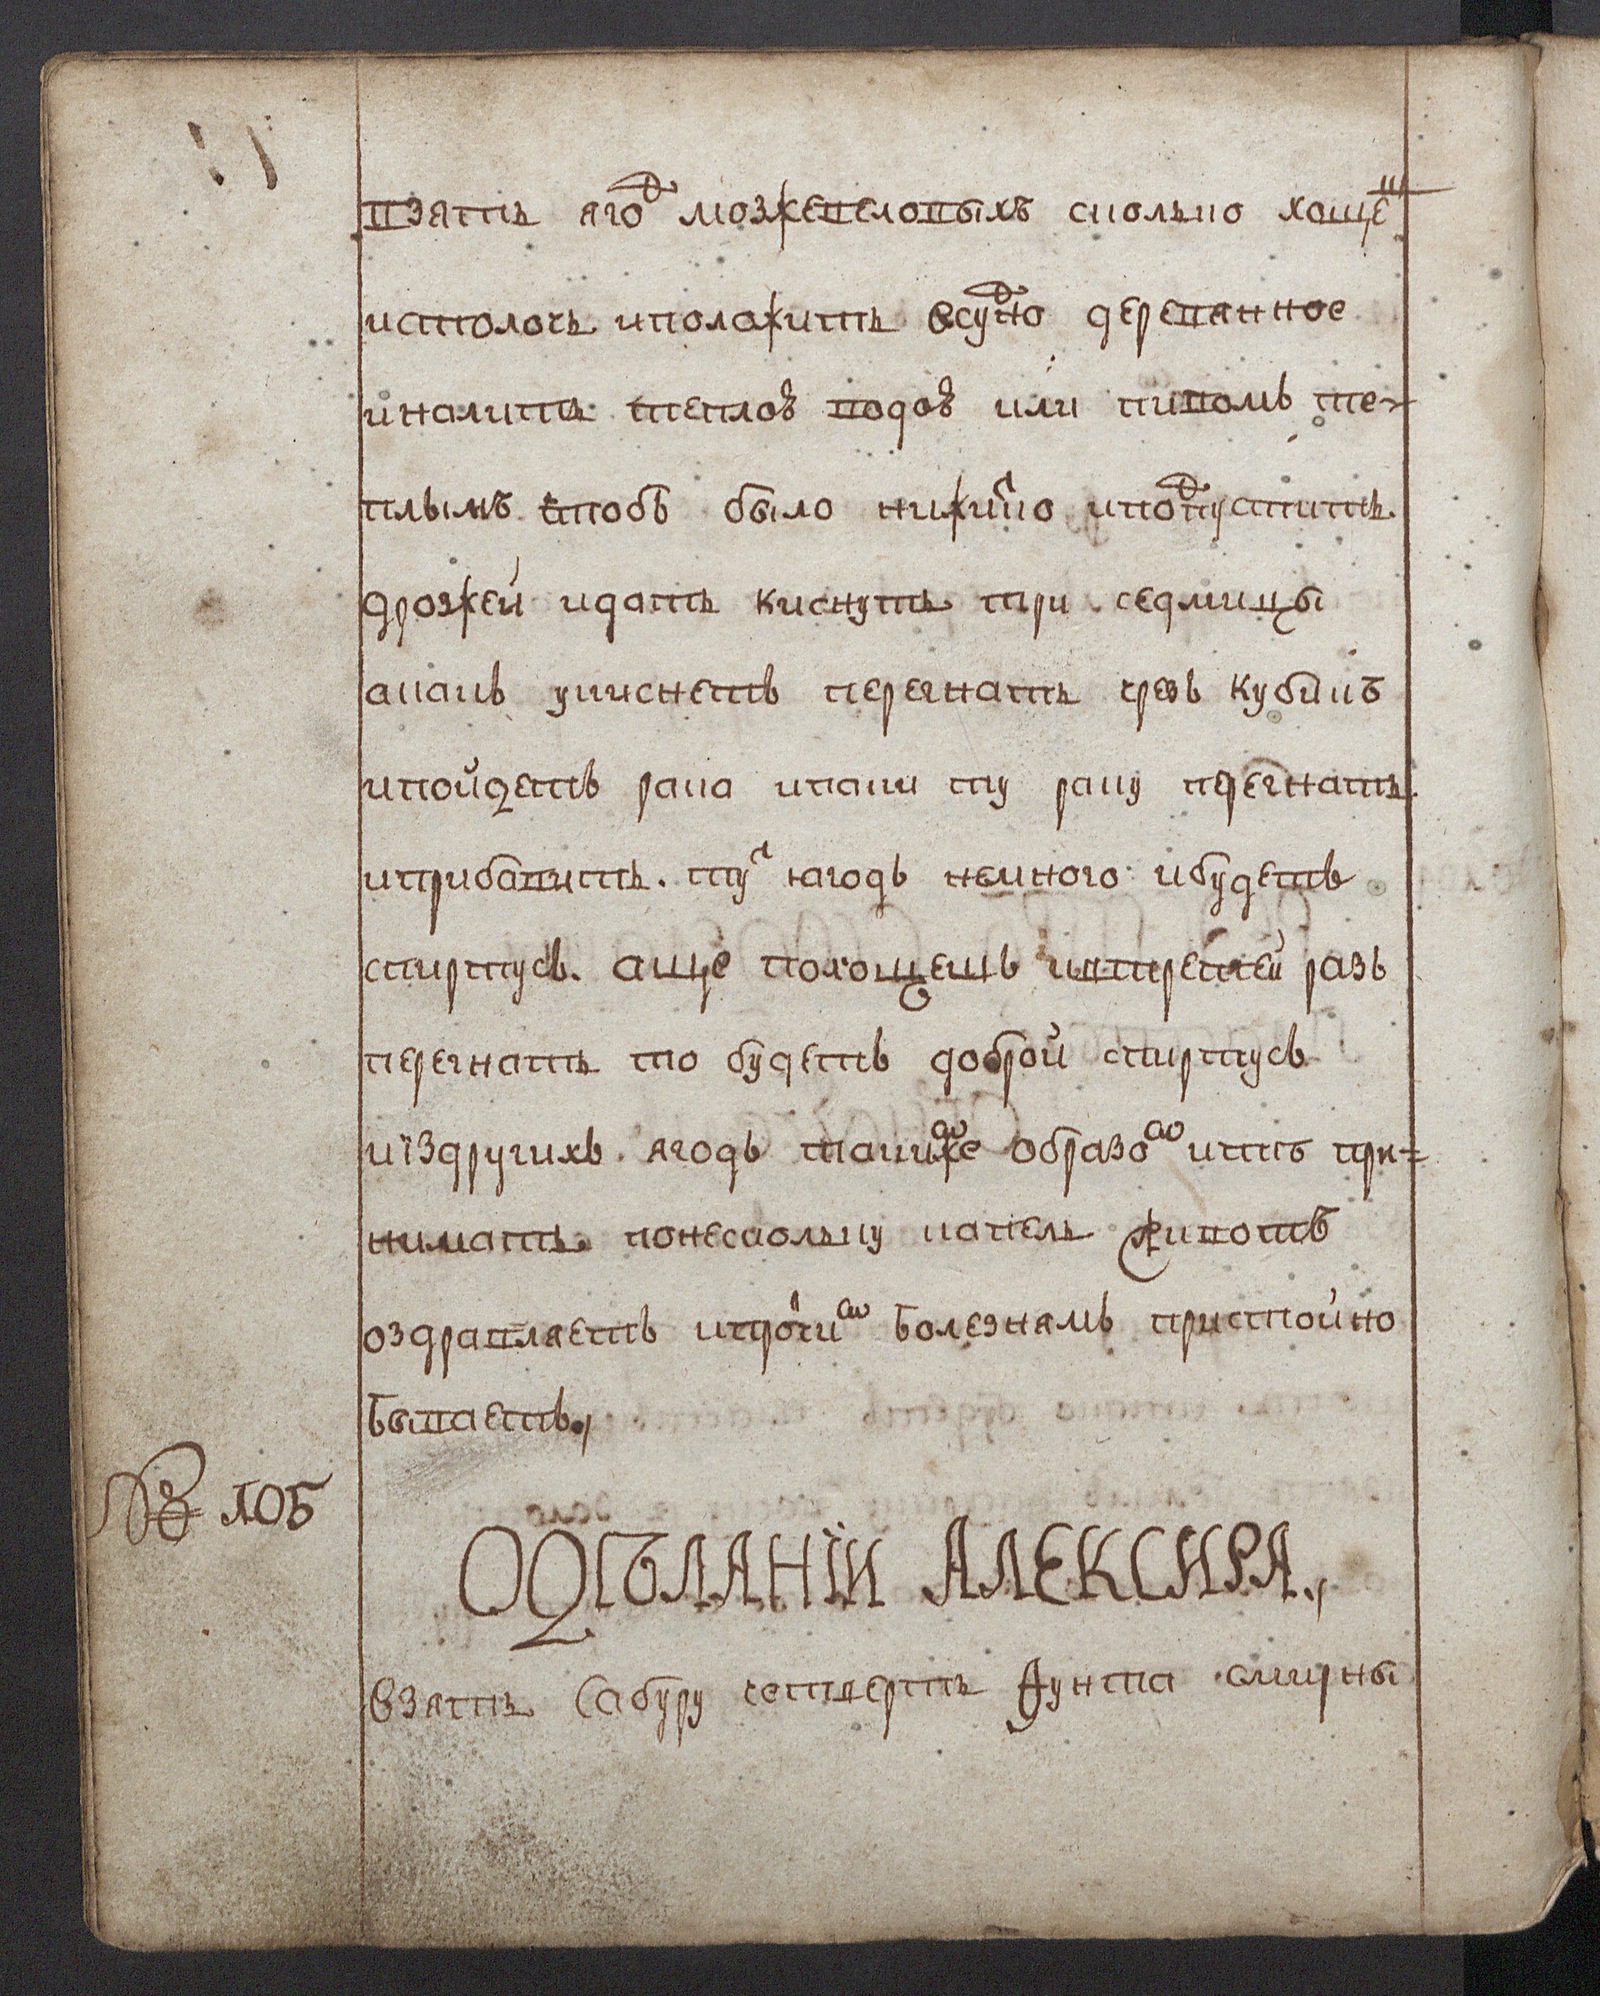 взять яго^д можжевеловыхъ сколько хоще^ш
истолочь иположить всу^дно деревянное
иналить теплоѣ водоѣ или пивомъ те=
плымъ чтобъ было жи^тко ипо^дпустить
дрожжей идать киснуть три седмицы
акакъ укиснетъ перегнать чрезъ кубикъ
ипойдетъ рака ипаки ту раку перегнать
иприбавить. ту^т ягодъ немного ибудетъ
спиртусъ. аще похощешъ ивтретей разъ
перегнать то будетъ доброй спиртусъ
иїздругихъ ягодъ таки^мже образо^м ипить при=
нимать. понескольку капель животъ
оздравляетъ ипрочи^м болезнямъ пристойно
бываетъ.,
№ 105
О ДѢЛАНЇИ АЛЕКСИРА.,
Взять Сабуру четверть фунта смирны